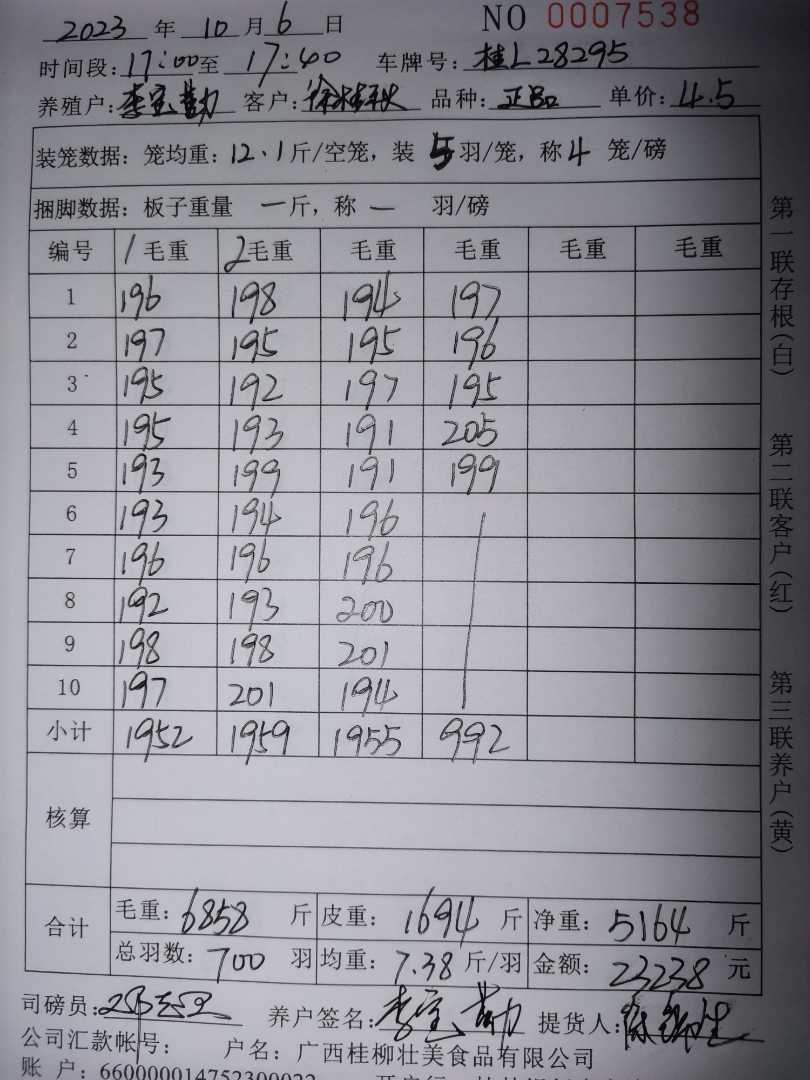 2023 年 10 月 6 日 NO 0007538
时间段: 17:00 至 17:40 车牌号: 桂L28295
养殖户: 李宝勤 客户: 品种: 正品 单价: 4.5
装笼数据: 笼均重: 12、1 斤/空笼, 装 5 羽/笼, 称 4 笼/磅
捆脚数据: 板子重量 一 斤, 称 一 羽/磅
编号 1毛重 2毛重 毛重 毛重 毛重 毛重
1 196 198 194 197
2 197 195 195 196
3 195 192 197 195
4 195 193 191 205
5 193 199 191 199
6 193 194 196
7 196 196 196
8 192 193 200
9 198 198 201
10 197 201 194
小计 1952 1959 1955 992
核算
合计
毛重: 6858 斤 皮重: 1694 斤 净重: 5164 斤
总羽数: 700 羽 均重: 7.38 斤/羽 金额: 23238 元
司磅员: 养户签名: 李宝勤 提货人:
公司汇款帐号: 户名: 广西桂柳壮美食品有限公司
账 户: 660000014752300022
第一联存根(白)
第二联客户(红)
第三联养户(黄)